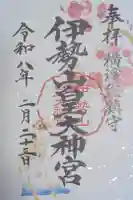 奉拝 横濱総鎮守
伊勢山皇大神宮
令和八年 二月二十三日